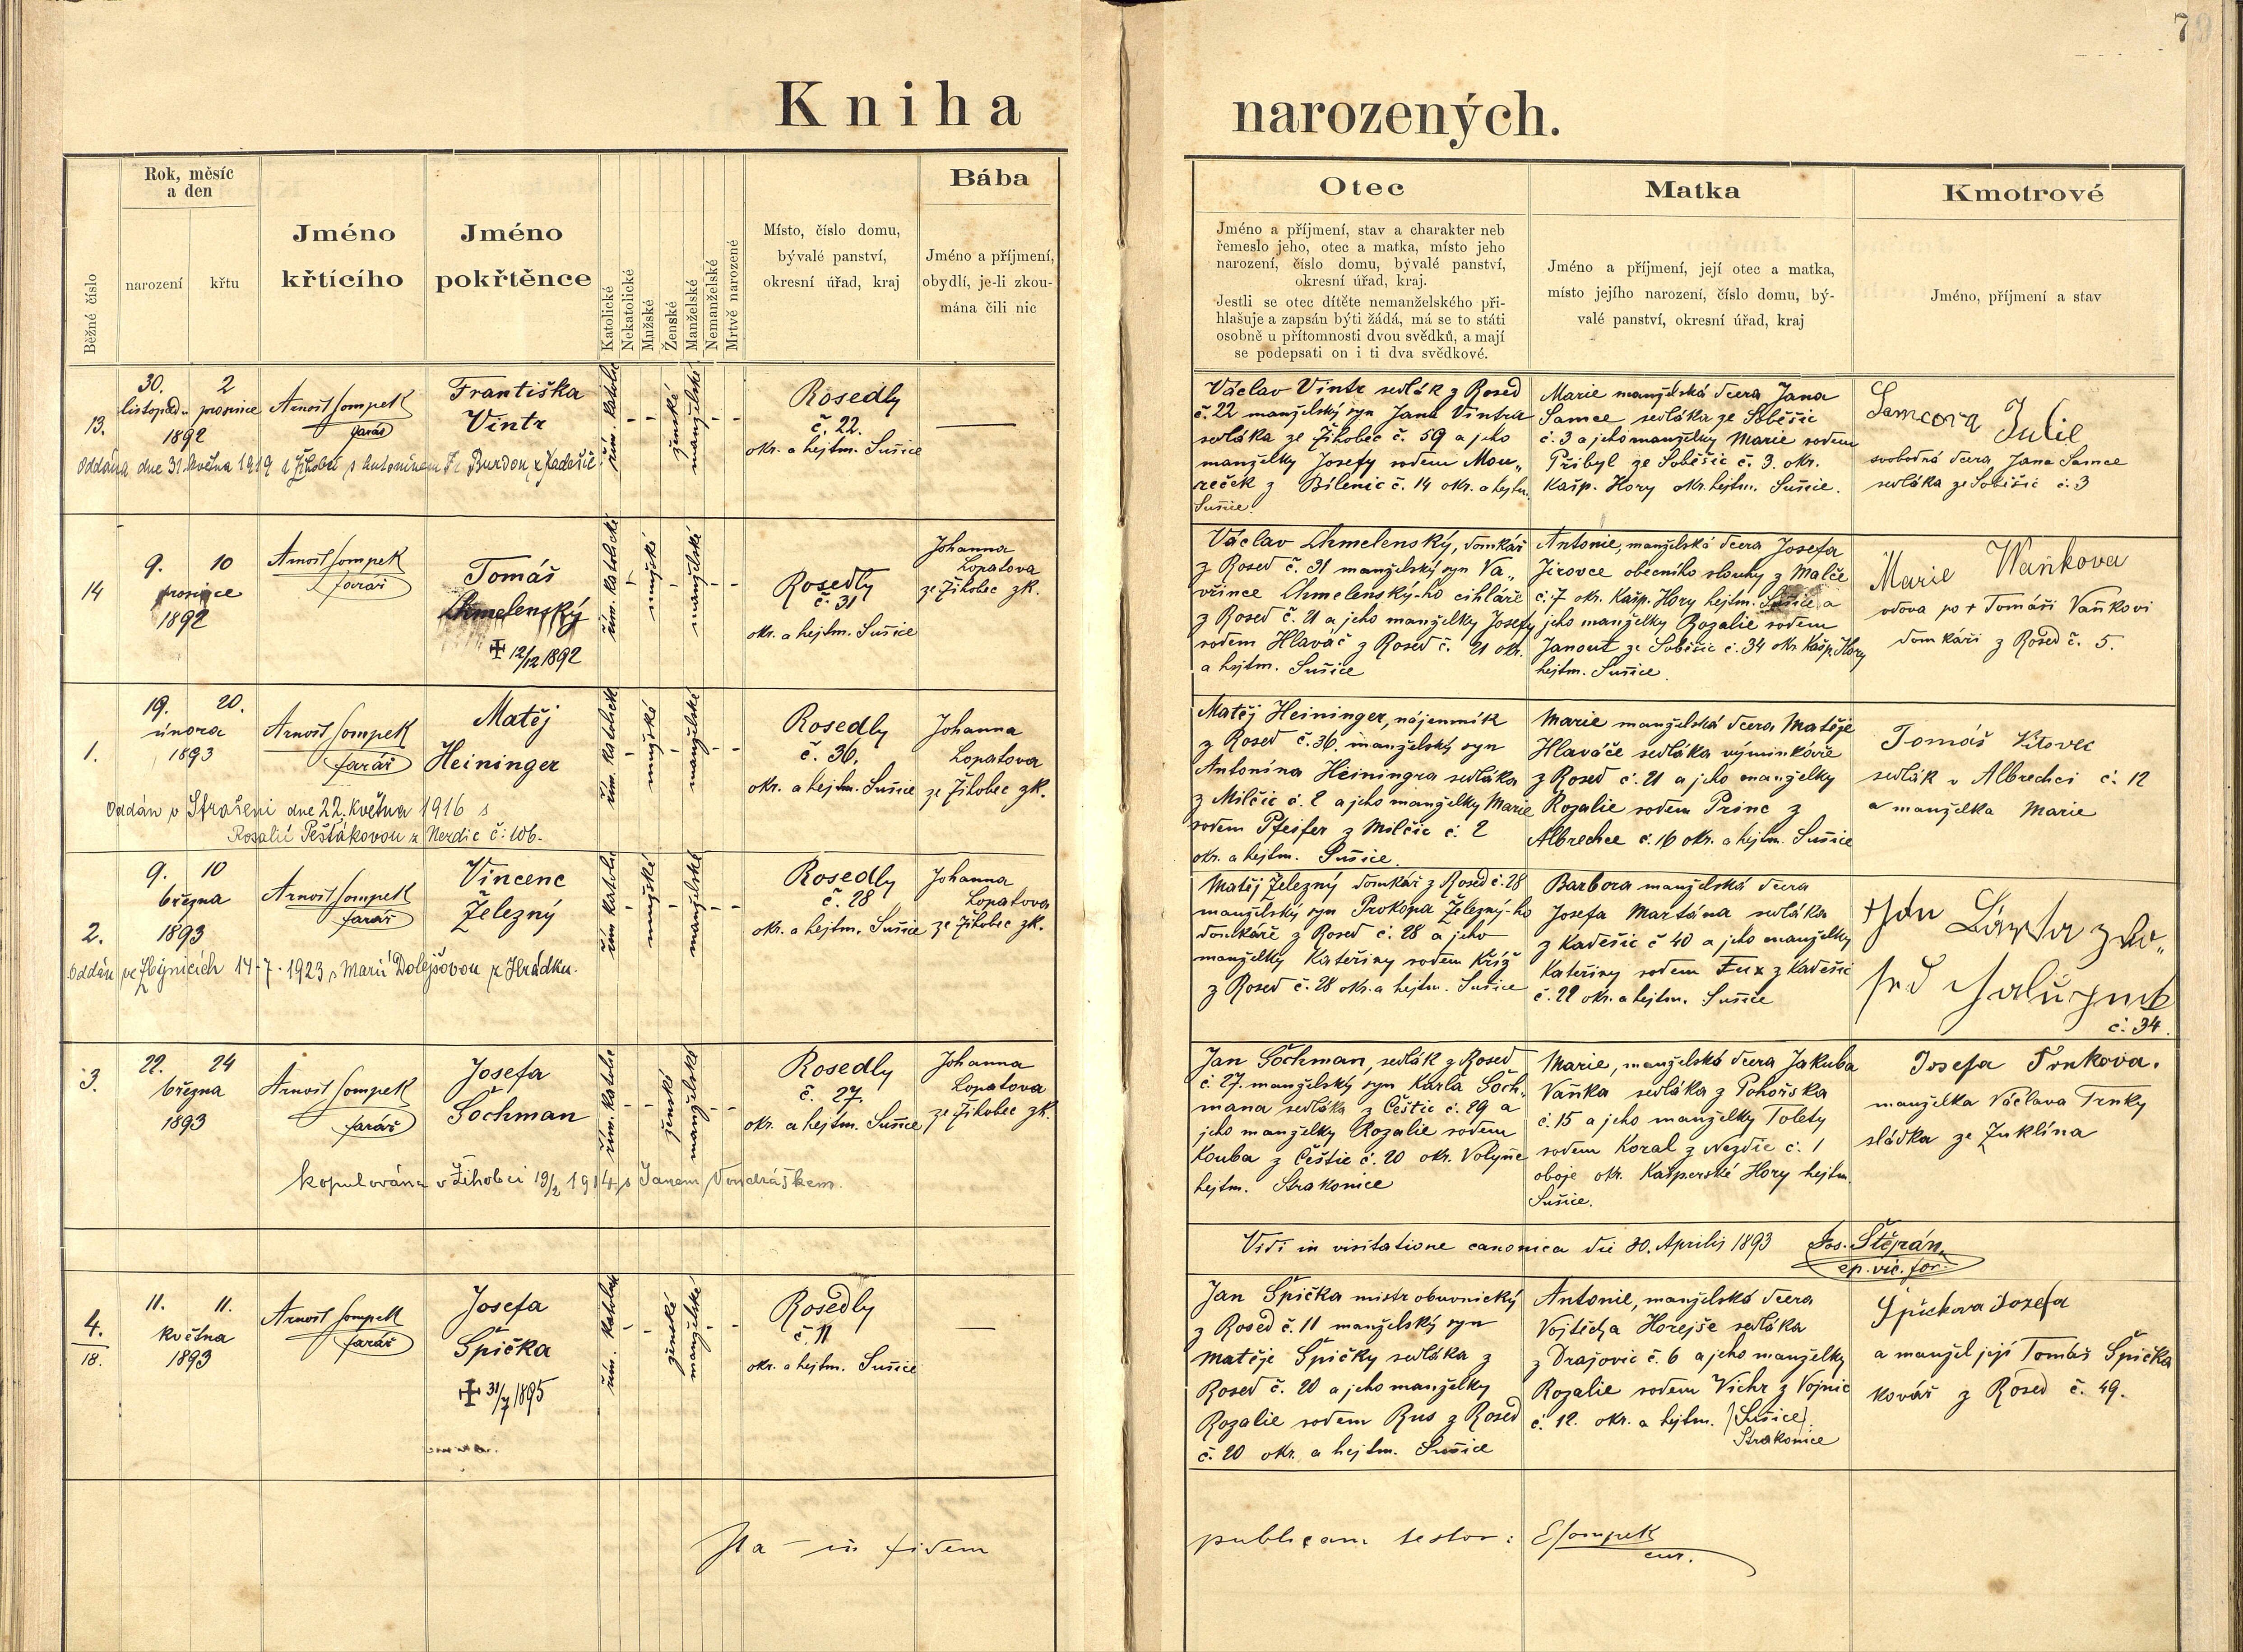 7
Kniha narozených.
Běžné číslo
Rok, měsíc
a den
narození
křtu
Jméno
křtícího
Jméno
pokřtěnce
Katolické
Nekatolické
Mužské
Ženské
Manželské
Nemanželské
Mrtvě narozené
Místo, číslo domu,
bývalé panství,
okresní úřad, kraj
Bába
Jméno a příjmení,
obydlí, je-li zkou-
mána čili nic
Otec
Jméno a příjmení, stav a charakter neb
řemeslo jeho, otec a matka, místo jeho
narození, číslo domu, bývalé panství,
okresní úřad, kraj.
Jestli se otec dítěte nemanželského při-
hlašuje a zapsán býti žádá, má se to státi
osobně u přítomnosti dvou svědků, a mají
se podepsati on i ti dva svědkové.
Matka
Jméno a příjmení, její otec a matka,
místo jejího narození, číslo domu, bý-
valé panství, okresní úřad, kraj
Kmotrové
Jméno, příjmení a stav
13.
30. 2
listopadu prosince
1892
Arnošt Sompek
farář
Františka
Vintr
řím. katolic
ženské
manželské
Rosedly
č. 22.
okr. a hejtm. Sušice
Oddána dne 31. května 1919 v Žihobci s Antonínem Fr. Burdou z Kadešic
Václav Vintr sedlák z Rosed
č. 22 manželský syn Jana Vintra
sedláka ze Žihobec č. 59 a jeho
manželky Josefy rodem Mou„
reček z Bílenic č. 14 okr. a hejtm.
Sušice.
Marie manželská dcera Jana
Samce sedláka ze Soběšic
č. 3 a jeho manželky Marie rodem
Přibyl ze Soběšic č. 3. okr.
Kašp. Hory okr. hejtm. Sušice.
Samcova Julie
svobodná dcera Jana Samce
sedláka ze Soběšic č. 3
14
9. 10
prosince
1892
Arnošt Sompek
farář
Tomáš
Chmelenský
✠ 12/12 1892
řím. katolické
mužské
manželské
Rosedly
č. 31
okr. a hejtm. Sušice
Johanna
Lopatova
ze Žihobec zk.
Václav Chmelenský, domkář
z Rosed č. 31 manželský syn Va„
vřince Chmelenský-ho cihláře
z Rosed č. 21 a jeho manželky Josefy
rodem Hlaváč z Rosed č. 21 okr.
a hejtm. Sušice
Antonie, manželská dcera Josefa
Jirovce obecního sluhy z Malče
č. 7 okr. Kašp. Hory hejtm. Sušice a
jeho manželky Rozalie rodem
Janout ze Soběšic č. 34 okr. Kašp. Hory
hejtm. Sušice.
Marie Waňkova
vdova po + Tomáši Vaňkovi
domkáři z Rosed č. 5.
1.
19. 20.
února
1893
Arnošt Sompek
farář
Matěj
Heininger
řím. katolické
mužské
manželské
Rosedly
č. 36.
okr. a hejtm. Sušice
Johanna
Lopatova
ze Žihobec zk.
Oddán v Strašeni dne 22. května 1916 s
Rosalií Pešťákovou z Nerdic č: 106.
Matěj Heininger, nájemník
z Rosed č. 36. manželský syn
Antonína Heiningra sedláka
z Milčic č. 2 a jeho manželky Marie
rodem Pfeifer z Milčic č. 2
okr. a hejtm. Sušice.
Marie manželská dcera Matěje
Hlaváče sedláka výminkáře
z Rosed č. 21 a jeho manželky
Rozalie rodem Princ z
Albrechce č. 16 okr. a hejtm. Sušice
Tomáš Vítovec
sedlák v Albrechci č. 12
a manželka Marie
2.
9. 10
března
1893
Arnošt Sompek
farář
Vincenc
Železný
řím. katolic
mužské
manželské
Rosedly
č. 28
okr. a hejtm. Sušice
Johanna
Lopatova
ze Žihobec zk.
Oddán ve Zbynicích 14.7.1923 s Marií Dolejšovou z Hrádku.
Matěj Železný domkář z Rosed č. 28
manželský syn Prokopa Železný-ho
domkáře z Rosed č. 28 a jeho
manželky Kateřiny rodem Kříž
z Rosed č. 28 okr. a hejtm. Sušice
Barbora manželská dcera
Josefa Martána sedláka
z Kadešic č 40 a jeho manželky
Kateřiny rodem Fux z Kadešic
č. 22 okr. a hejtm. Sušice
č. 34.
3.
22. 24
března
1893
Arnošt Sompek
farář
Josefa
Sochman
řím. katolic
ženské
manželské
Rosedly
č. 27.
okr. a hejtm. Sušice
Johanna
Lopatova
ze Žihobec zk.
kopulována v Žihobci 19/2 1914 s Janem Vondráškem.
Jan Sochman, sedlák z Rosed
č. 27. manželský syn Karla Soch„
mana sedláka z Čestic č. 29 a
jeho manželky Rozalie rodem
Kouba z Čestic č. 20 okr. Volyně
hejtm. Strakonice
Marie, manželská dcera Jakuba
Vaňka sedláka z Pohorska
č. 15 a jeho manželky Tolety
rodem Koral z Nezdic č. 1
oboje okr. Kašperské Hory hejtm.
Sušice.
Josefa Trnkova.
manželka Václava Trnky
sládka ze Zuklína
Vidi in visitatione canonica die 30. Aprilis 1893 Jos. Štěpán,
ep. vic. for.
4.
18.
11. 11.
května
1893
Arnošt Sompek
farář
Josefa
Špička
✠ 31/7 1895
řím. katolické
ženské
manželské
Rosedly
č. 11
okr. a hejtm. Sušice
Jan Špička mistr obuvnický
z Rosed č. 11 manželský syn
Matěje Špičky sedláka z
Rosed č. 20 a jeho manželky
Rozalie rodem Rus z Rosed
č. 20 okr. a hejtm. Sušice
Antonie, manželská dcera
Vojtěcha Horejše sedláka
z Dražovic č. 6 a jeho manželky
Rozalie rodem Vichr z Vojnic
č. 12. okr. a hejtm. (Sušice).
Strakonice
Špičkova Josefa
a manžel její Tomáš Špička
kovář z Rosed č. 49.
Ita in fidem publicam testor: E Sompek
cur.